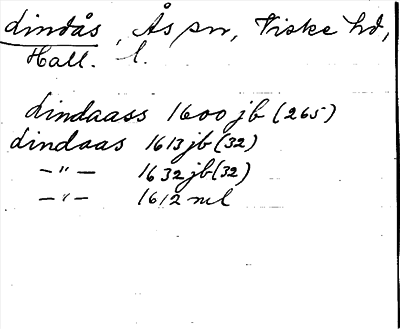 Lindås, Ås sn, Viske hd,
Hall. l.
Lindaass 1600 jb (265)
Lindaas 1613 jb (32)
— " — 1632 jb (32)
— " — 1612 ml